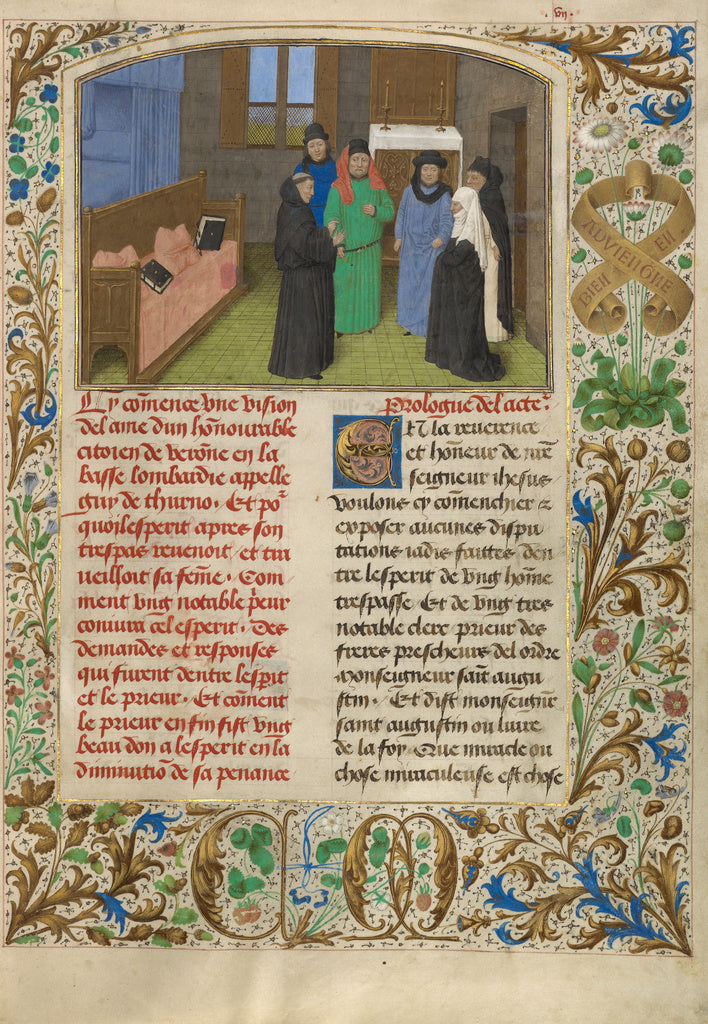 .vij.
BIEN
ADVIENGNE
Cy cõmence vne vision
del ame dun hõnourable
citoien de verõne en la
basse lombardie appelle
guy de thurno. Et po᷑
quoi lesperit apres son
trespas reuenoit et tra
ueilloit sa fẽme. Com
ment vng notable p̾eur
coniura cel esperit. Des
demandes et responses
qui furent dentre lesp̾it
et le prieur. Et cõment
le prieur en fin fist vng
beau don a lesperit en la
diminutiõ de sa penance
Prologue del acte᷑.
En la reuerence
et hõneur de nr̃e
seigneur ihesus
voulons cy cõmenchier &
exposer aucunes dispu
tations iadis faittes den
tre lesperit de vng hõme
trespasse. Et de vng tres
notable clerc prieur des
freres prescheurs del ordre
monseigneur saĩt augu
stin. Et dist monseignr̃
saint augustin ou liure
de la foy. Que miracle ou
chose miraculeuse est chose
C M